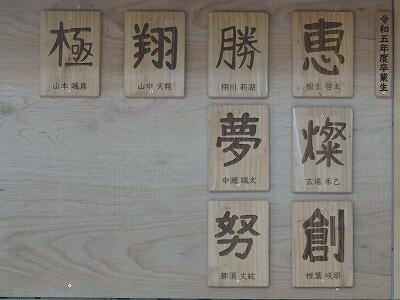 令和五年度卒業生
恵
相生 啓太
勝
栩川 莉湖
翔
山中 天翔
極
山本 颯真
燦
玄場 禾乙
夢
中瀬 颯太
創
椎葉 咲耶
努
那須 丈紘